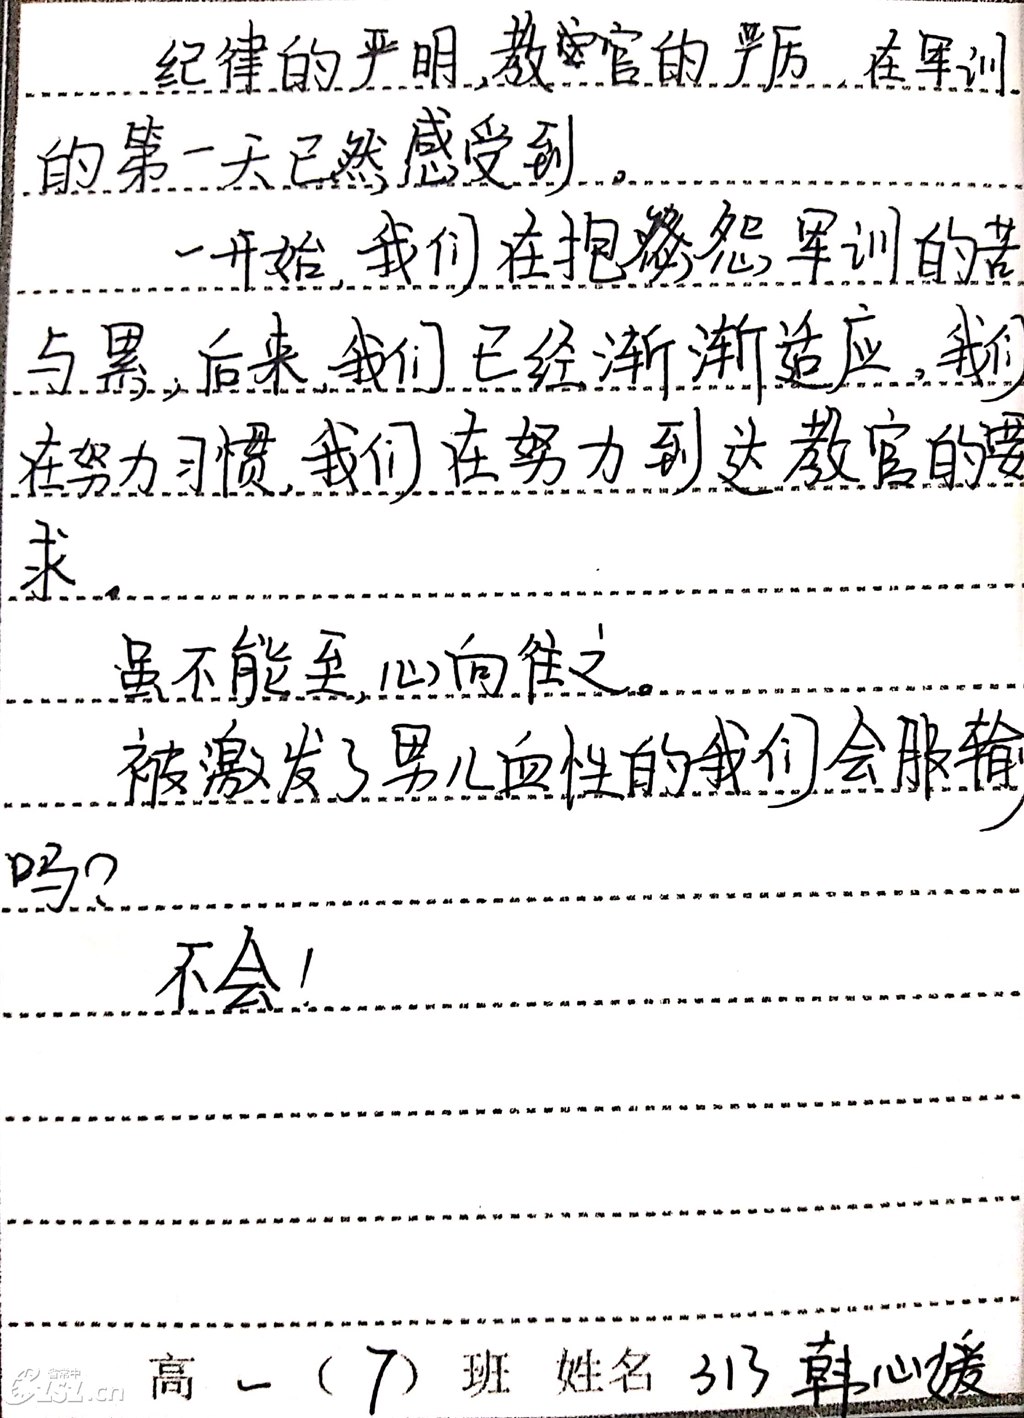 纪律的严明,教官的严厉,在军训
的第一天已然感受到。
一开始,我们在抱怨军训的苦
与累,后来,我们已经渐渐适应,我们
在努力习惯,我们在努力到达教官的要
求。
虽不能至,心向往之。
被激发了男儿血性的我们会服输
吗?
不会!
高一(7)班 姓名 313 韩心媛